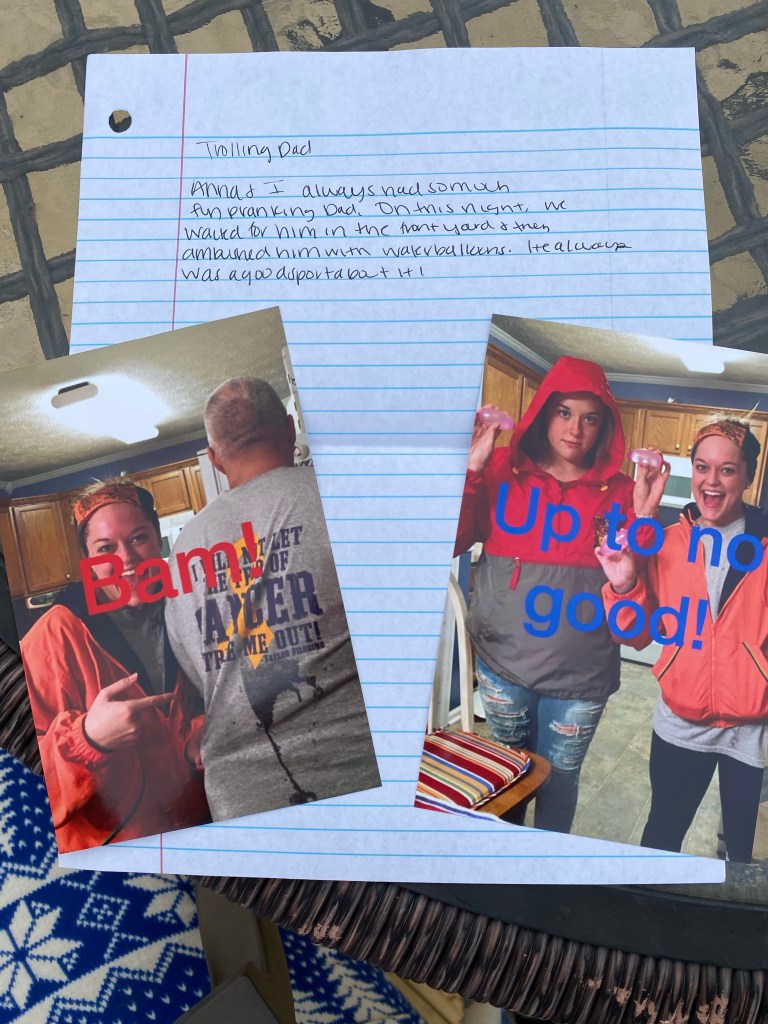 Trolling Dad
Anna & I always had so much
fun pranking Dad. On this night, we
waited for him in the front yard & then
ambushed him with waterballoons. He always
was a good sport about it!
Bam!
LET
OF
CANCER
ME OUT!
TAYLOR
Up to no
good!